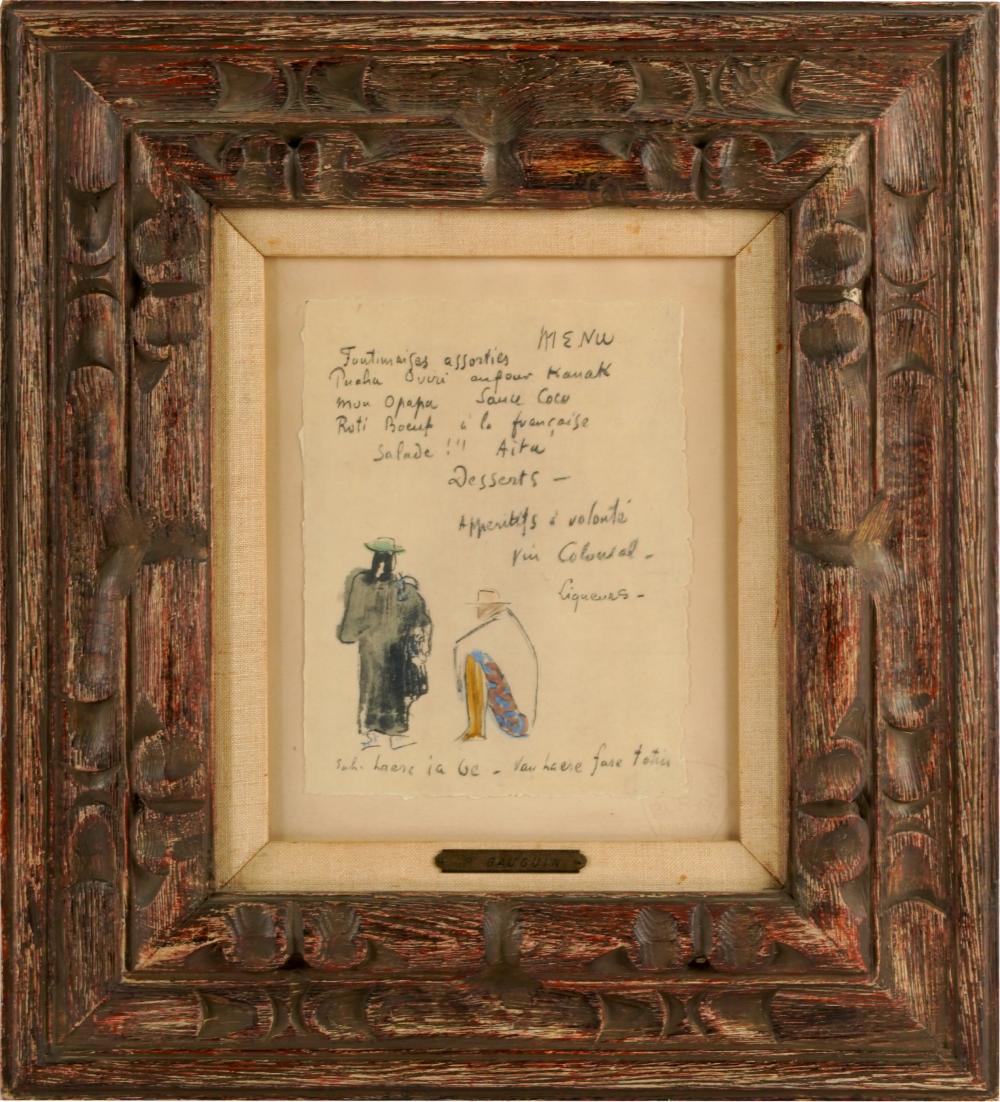 MENU
assorties
Puaha Oviri aufour Kanak
mou Opapa Sauce Coco
Roti Boeuf à la française
Salade !!! Aita
Desserts —
Apperitifs à volonté
Vin Colonial -
Liqueurs -
haere ia be - Vau haere fare
P GAUGUIN